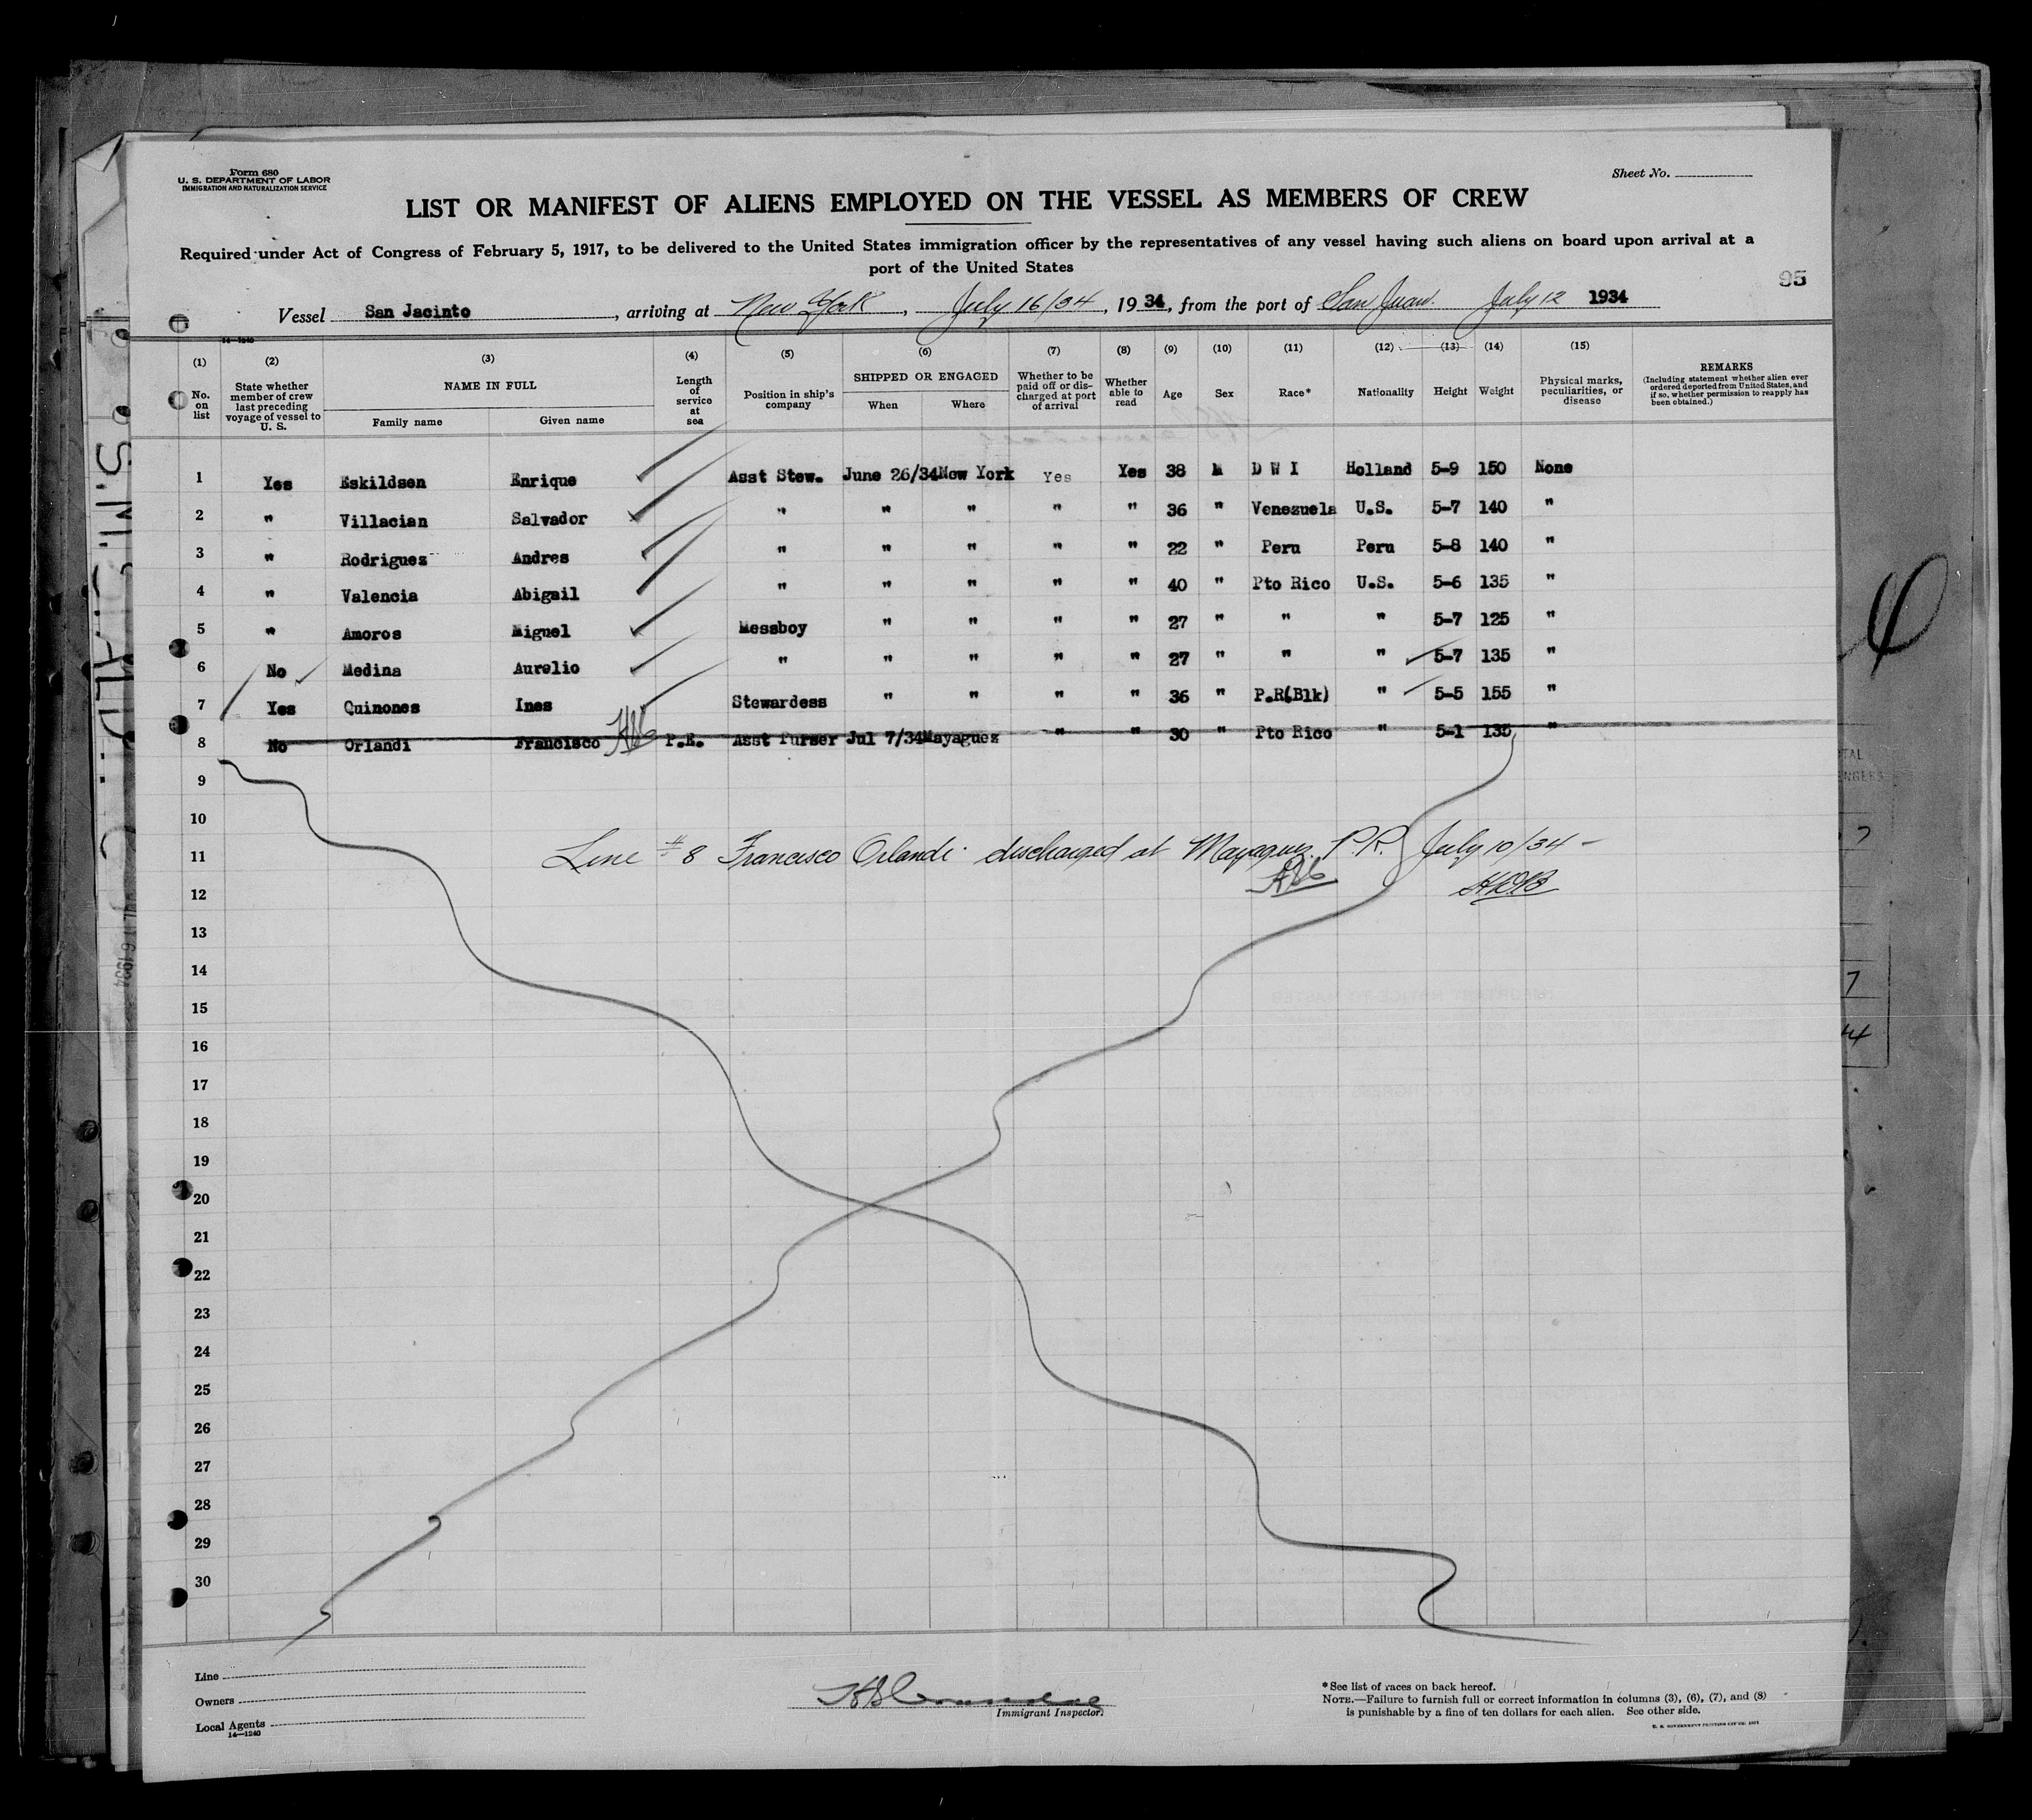 Form 680
U. S. DEPARTMENT OF LABOR
IMMIGRATION AND NATURALIZATION SERVICE
Sheet No.
LIST OR MANIFEST OF ALIENS EMPLOYED ON THE VESSEL AS MEMBERS OF CREW
Required under Act of Congress of February 5, 1917, to be delivered to the United States immigration officer by the representatives of any vessel having such aliens on board upon arrival at a
port of the United States
95
Vessel San Jacinto, arriving at New York, July 16/34, 1934, from the port of San Juan. July 12 1934
14—1240
(1) (2) (3) (4) (5) (6) (7) (8) (9) (10) (11) (12) (13) (14) (15)
No. on list State whether member of crew last preceding voyage of vessel to U. S. NAME IN FULL Family name Given name Length of service at sea Position in ship's company SHIPPED OR ENGAGED When Where Whether to be paid off or discharged at port of arrival Whether able to read Age Sex Race* Nationality Height Weight Physical marks, peculiarities, or disease REMARKS (Including statement whether alien ever ordered deported from United States, and if so, whether permission to reapply has been obtained.)
1 Yes Eskildsen Enrique Asst Stew. June 26/34 New York Yes Yes 38 M D W I Holland 5-9 150 None
2 " Villacian Salvador " " " " " 36 " Venezuela U.S. 5-7 140 "
3 " Rodriguez Andres " " " " " 22 " Peru Peru 5-8 140 "
4 " Valencia Abigail " " " " " 40 " Pto Rico U.S. 5-6 135 "
5 " Amoros Miguel Messboy " " " " 27 " " " 5-7 125 "
6 No Medina Aurelio " " " " " 27 " " " 5-7 135 "
7 Yes Quinones Ines Stewardess " " " " 36 " P.R(Blk) " 5-5 155 "
8 No Orlandi Francisco P.E. Asst Purser Jul 7/34 Mayaguez " " 30 " Pto Rico " 5-1 135 "
9
10
11 Line #8 Francisco Orlandi discharged at Mayaguez P.R. July 10/34 -
12
13
14
15
16
17
18
19
20
21
22
23
24
25
26
27
28
29
30
Line
Owners
Local Agents
14—1240
Immigrant Inspector.
* See list of races on back hereof.
NOTE.—Failure to furnish full or correct information in columns (3), (6), (7), and (8)
is punishable by a fine of ten dollars for each alien. See other side.